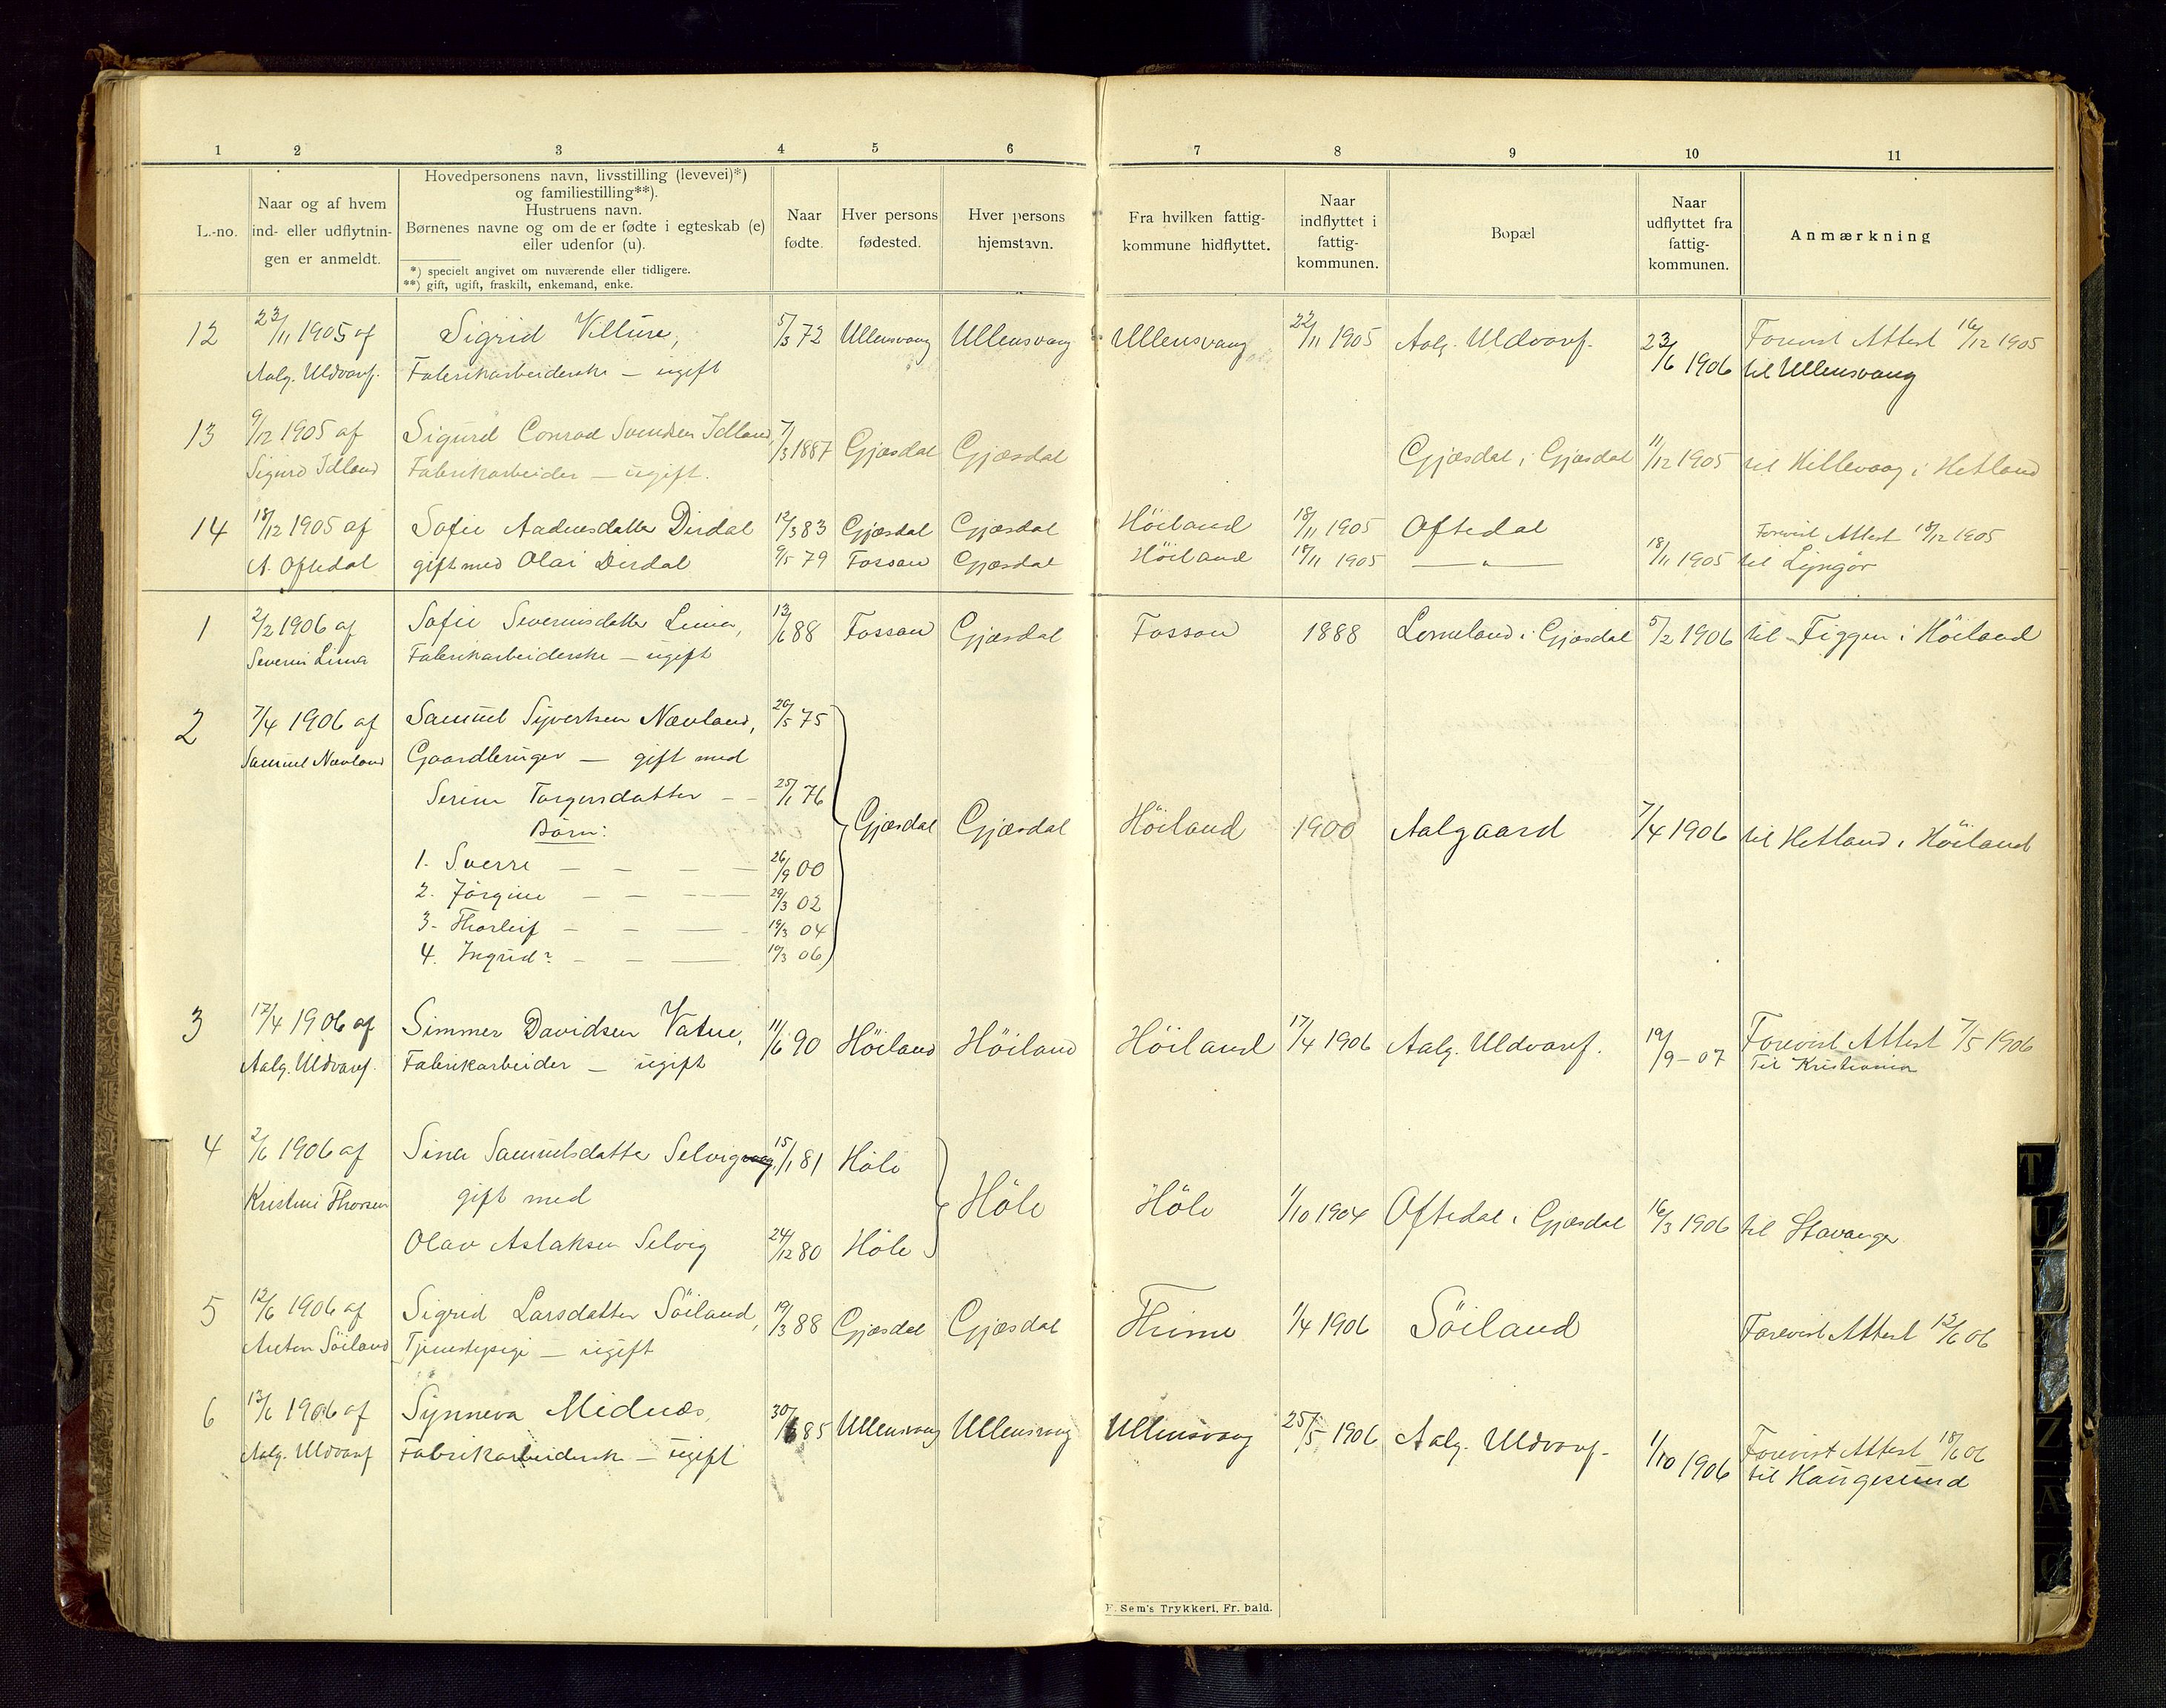 1 2 3 4 5 6 7 8 9 10 11
L.-no.
Naar og af hvem
ind- eller udflytnin-
gen er anmeldt.
Hovedpersonens navn, livsstilling (levevei)*)
og familiestilling**).
Hustruens navn.
Børnenes navne og om de er fødte i egteskab (e)
eller udenfor (u).
*) specielt angivet om nuværende eller tidligere.
**) gift, ugift, fraskilt, enkemand, enke.
Naar
fødte.
Hver persons
fødested.
Hver persons
hjemstavn.
Fra hvilken fattig-
kommune hidflyttet.
Naar
indflyttet i
fattig-
kommunen.
Bopæl
Naar
udflyttet fra
fattig-
kommunen.
Anmærkning
12 23/11 1905 af Sigrid 5/3 72 Ullensvang Ullensvang Ullensvang 22/11 1905 Aalg. Uldvarf. 23/6 1906 Forevist Attest 16/12 1905
Aalg. Uldvarf. Fabrikarbeiderske — ugift til Ullensvang
13 9/12 1905 af Sigurd Conrad Svendsen Idland, 7/3 1887 Gjæsdal Gjæsdal Gjæsdal i Gjæsdal 11/12 1905 til Hillevaag i Hetland
Sigurd Idland Fabrikarbeider — ugift.
14 18/12 1905 af Sofie Aadnesdatter Dirdal 12/3 83 Gjæsdal Gjæsdal Höiland 18/11 1905 Oftedal Forevist Attest 18/12 1905
A. Oftedal gift med Olai Dirdal 9/5 79 Fossan Gjæsdal Höiland 18/11 1905 — " — 18/11 1905 til Lyngör
1 2/2 1906 af Sofie Severinsdatter Lima, 13/6 88 Fossan Gjæsdal Fossan 1888 i Gjæsdal 5/2 1906 til Figgen i Höiland
Severin Lima Fabrikarbeiderske — ugift
2 7/4 1906 af Samuel Syvertsen Nævland, 29/5 75
Samuel Nævland Gaardbruger — gift med
Serine Torgersdatter — 25/1 76
Börn: Gjæsdal Gjæsdal Höiland 1900 Aalgaard 7/4 1906 til Hetland i Höiland
1. Sverre — — — — 26/9 00
2. Jörgine — — — — 29/3 02
3. Thorleif — — — — 19/3 04
4. Ingrid? — — — 19/3 06
3 17/4 1906 af Simmer Davidsen Vatne, 11/6 90 Höiland Höiland Höiland 17/4 1906 Aalg. Uldvarf. 19/9-07 Forevist Attest 7/5 1906
Aalg. Uldvarf. Fabrikarbeider — ugift Til Kristiania
4 2/6 1906 af Sina Samuelsdatter Selvig 15/1 81 Höle
Kristine Thorsen gift med Höle Höle 1/10 1904 Oftedal i Gjæsdal 16/3 1906 til Stavanger
Olav Aslaksen Selvig 24/12 80 Höle
5 12/6 1906 af Sigrid Larsdatter Söiland, 19/3 88 Gjæsdal Gjæsdal Thime 1/4 1906 Söiland Forevist Attest 12/6 06
Anton Söiland Tjenestepige — ugift
6 13/6 1906 af Synneva Midnæs, 30/6 85 Ullensvang Ullensvang Ullensvang 25/5 1906 Aalg. Uldvarf. 1/10 1906 Forevist Attest 18/6 06
Aalg. Uldvarf Fabrikarbeidersk — ugift til Haugesund
F. Sem's Trykkeri, Fr. bald.
T
U
Z